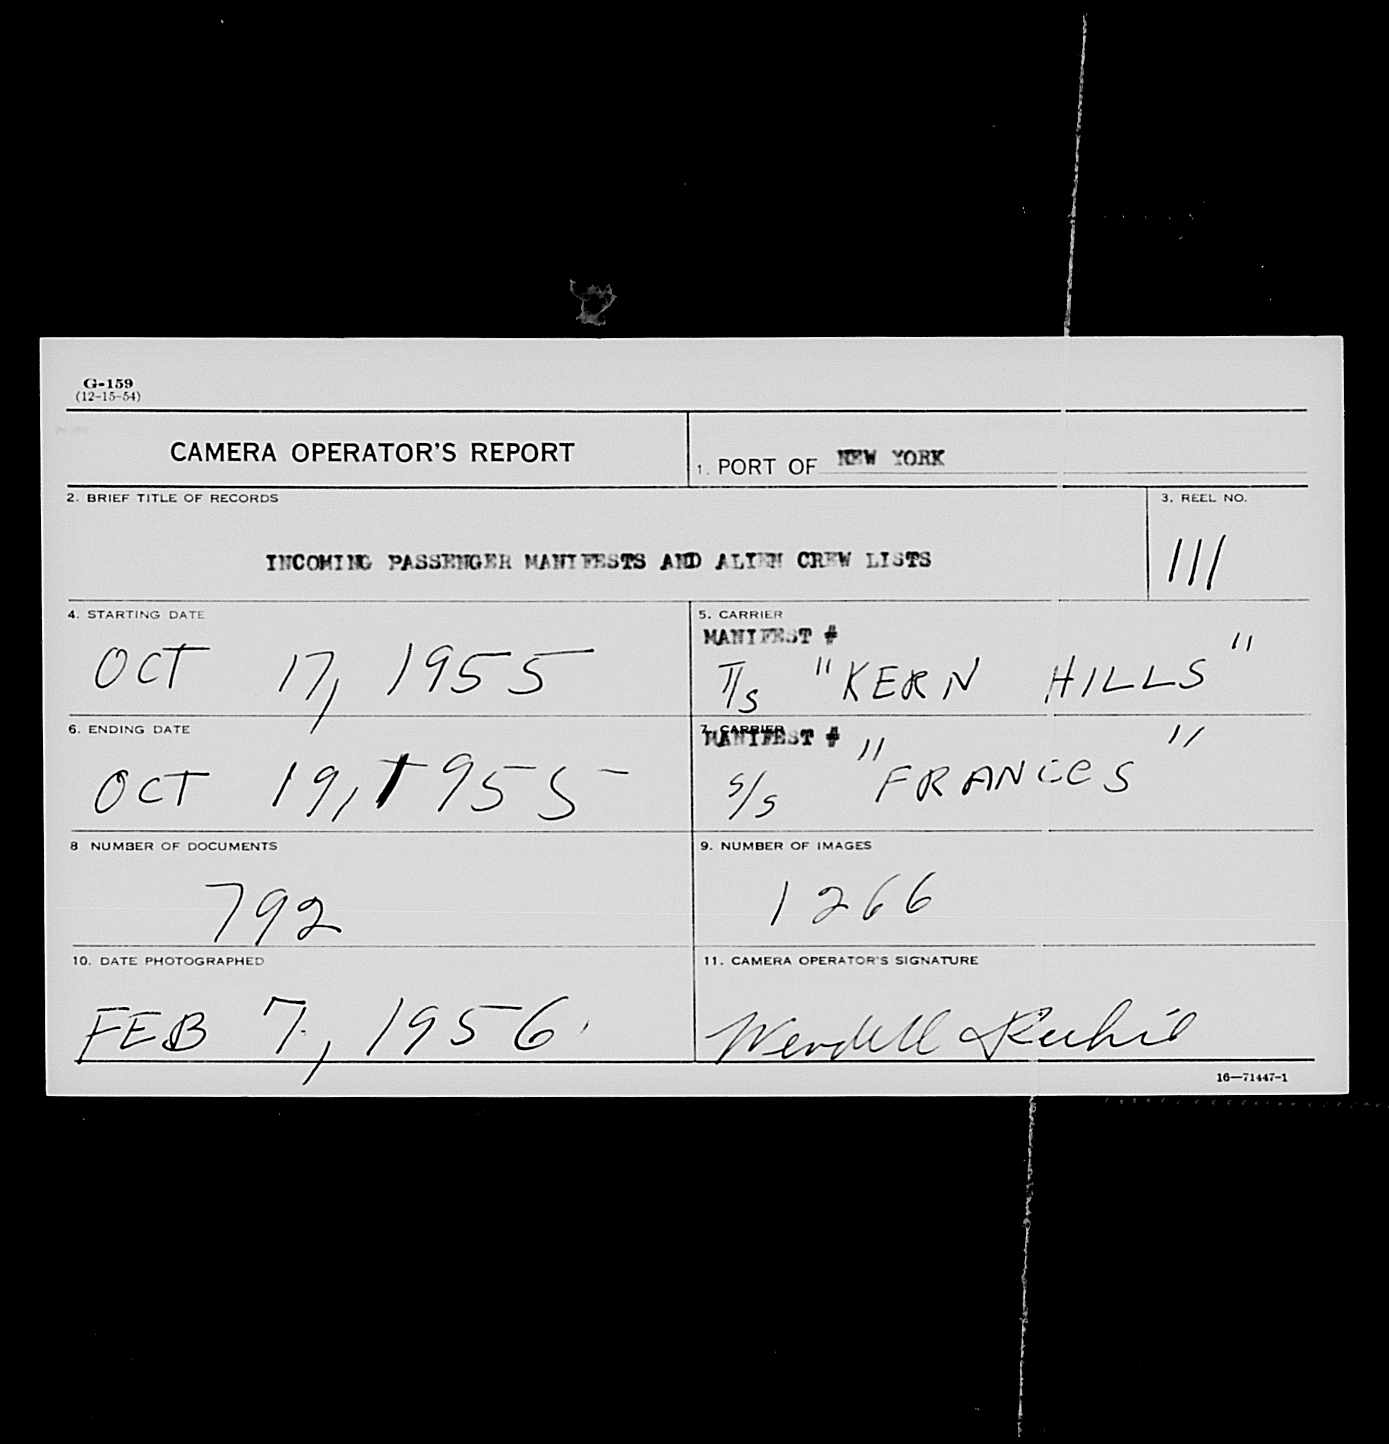 G-159
(12-15-54)
CAMERA OPERATOR'S REPORT
1. PORT OF NEW YORK
2. BRIEF TITLE OF RECORDS
INCOMING PASSENGER MANIFESTS AND ALIEN CREW LISTS
3. REEL NO.
111
4. STARTING DATE
OCT 17, 1955
5. CARRIER
MANIFEST #
T/S "KERN HILLS"
6. ENDING DATE
OCT 19, 1955
7. CARRIER
MANIFEST #
S/S "FRANCES"
8 NUMBER OF DOCUMENTS
792
9. NUMBER OF IMAGES
1266
10. DATE PHOTOGRAPHED
FEB 7, 1956
11. CAMERA OPERATOR'S SIGNATURE
Wendell
16—71447-1